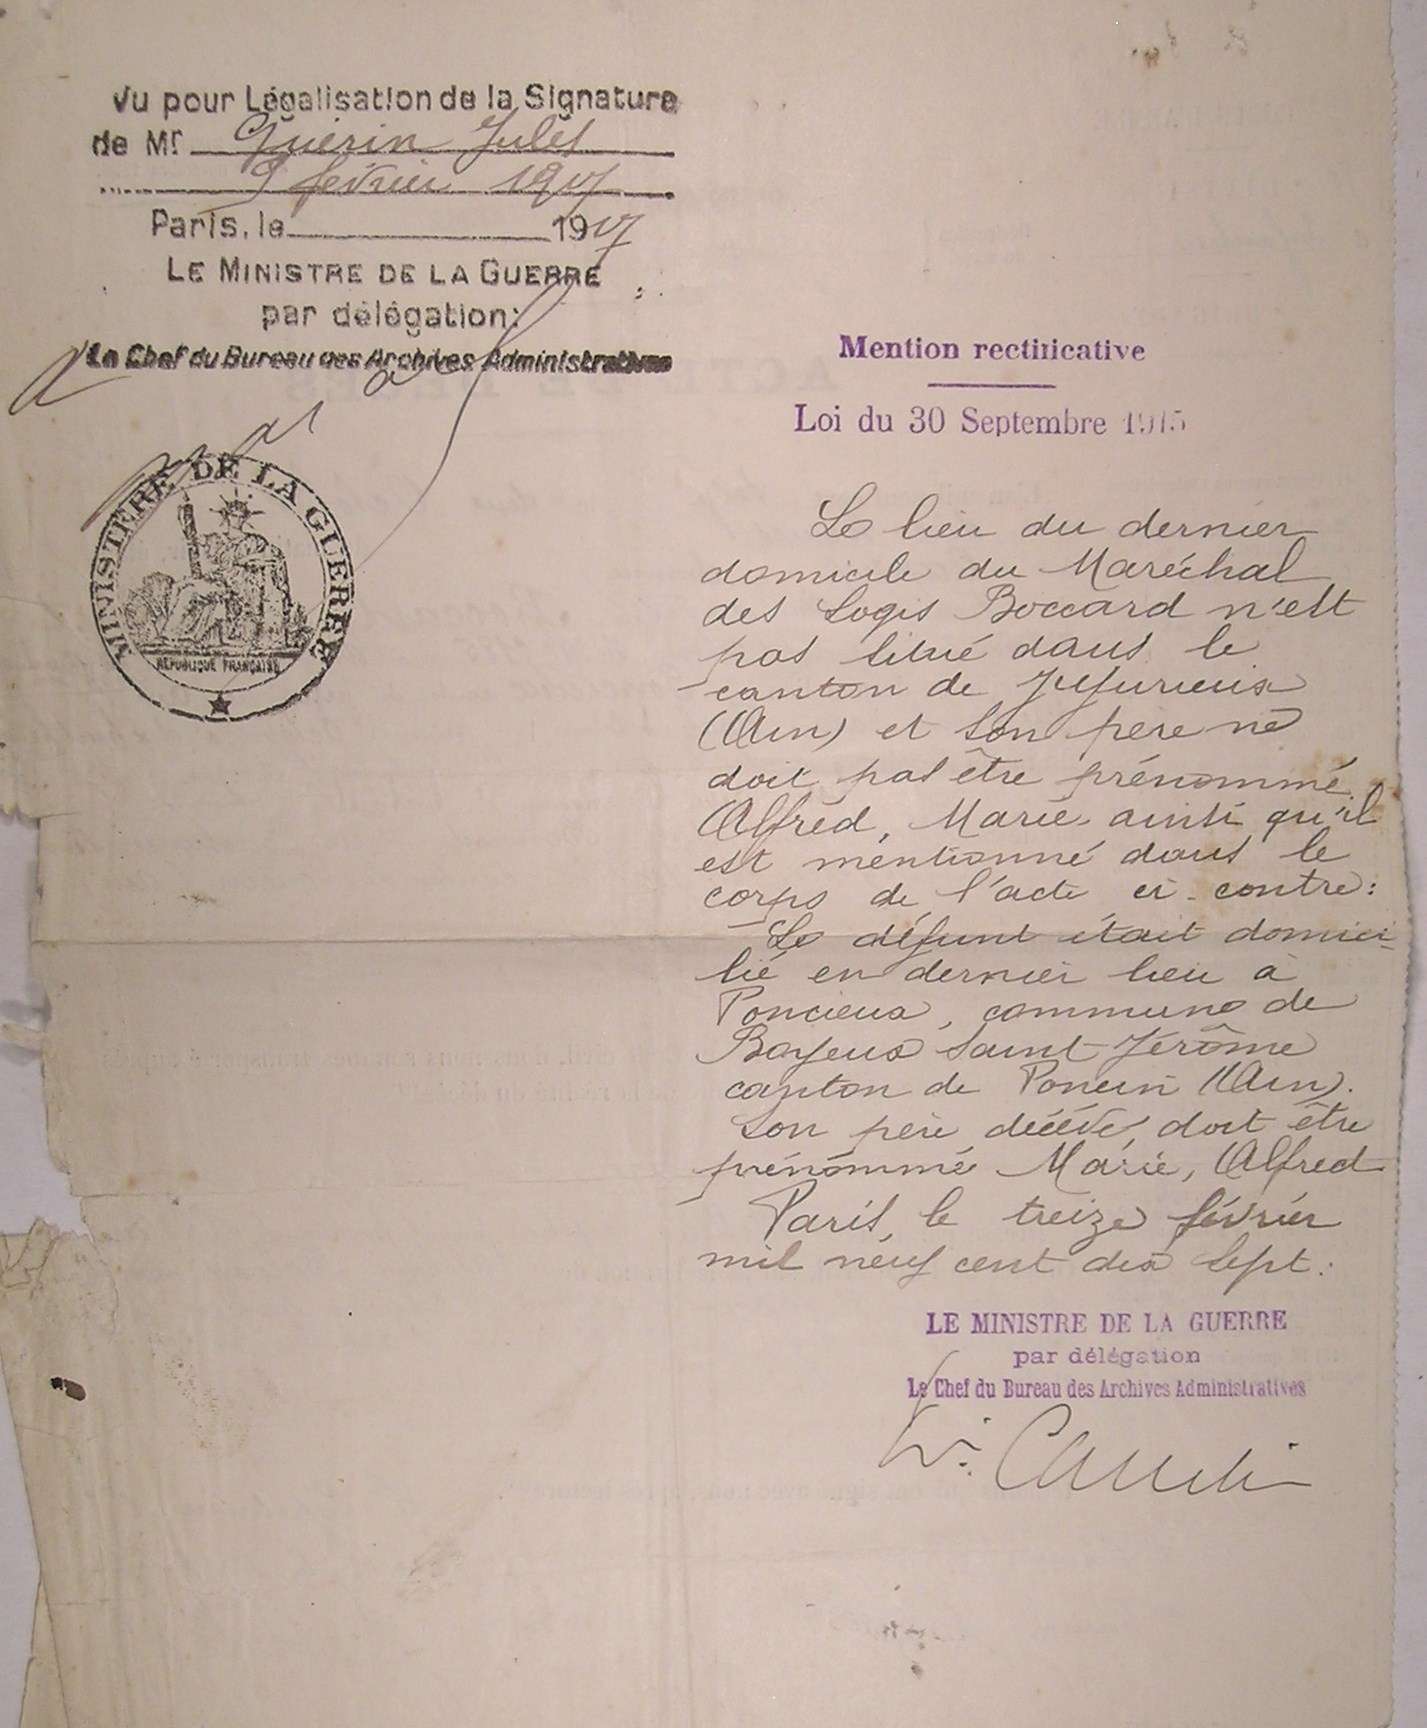 Vu pour Légalisation de la Signature
de Mr Guérin Jules
9 février 1917
Paris, le 1917
LE MINISTRE DE LA GUERRE
par délégation:
Le Chef du Bureau des Archives Administratives
MINISTERE DE LA GUERRE
REPUBLIQUE FRANÇAISE
Mention rectificative
Loi du 30 Septembre 1915
Le lieu du dernier
domicile du Maréchal
des Logis Boccard n'est
pas situé dans le
canton de Jujurieux
(Ain) et son père ne
doit pas être prénommé
Alfred, Marie ainsi qu'il
est mentionné dans le
corps de l'acte ci-contre:
Le défunt était domici-
lié en dernier lieu à
Poncieux, commune de
Boyeux Saint Jérôme
canton de Poncin (Ain).
Son père décédé, doit être
prénommé Marie, Alfred
Paris, le treize février
mil neuf cent dix sept.
LE MINISTRE DE LA GUERRE
par délégation
Le Chef du Bureau des Archives Administratives